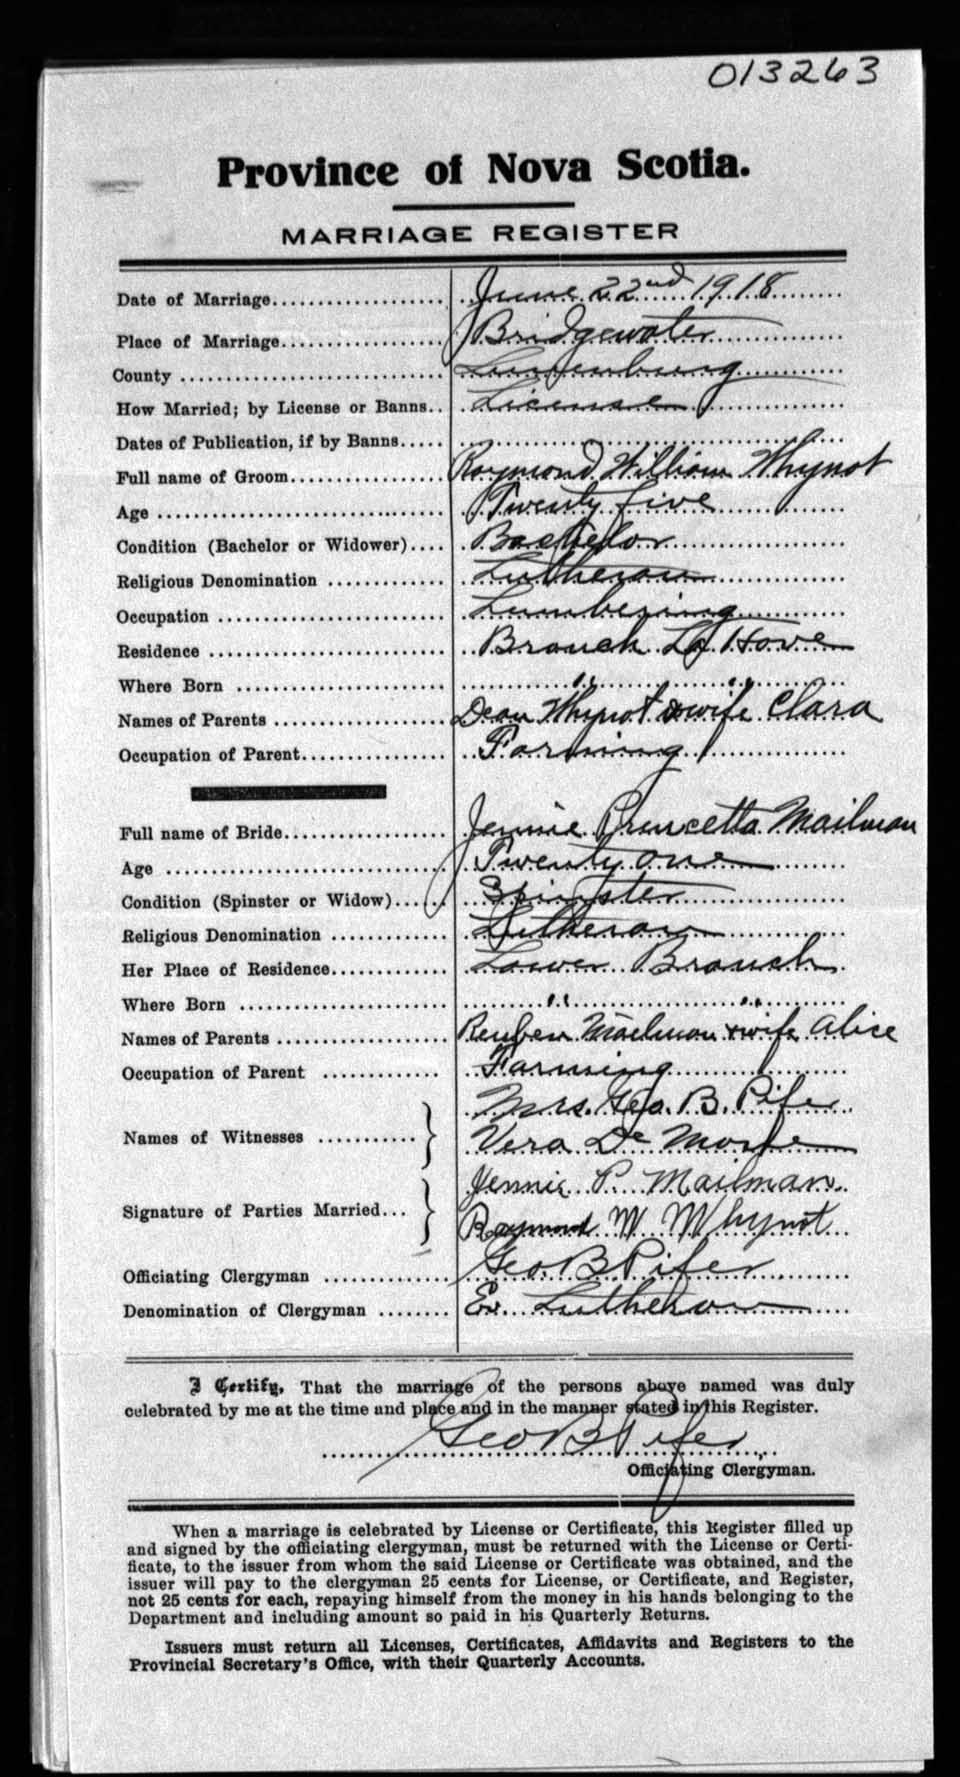 013263
Province of Nova Scotia.
MARRIAGE REGISTER
Date of Marriage June 22nd 1918
Place of Marriage Bridgewater
County Lunenburg
How Married; by License or Banns License
Dates of Publication, if by Banns
Full name of Groom Raymond William Whynot
Age Twenty five
Condition (Bachelor or Widower) Bachelor
Religious Denomination Lutheran
Occupation Lumbering
Residence Branch La Have
Where Born " "
Names of Parents Dean Whynot & wife Clara
Occupation of Parent Farming
Full name of Bride Jennie Mailman
Age Twenty one
Condition (Spinster or Widow) Spinster
Religious Denomination Lutheran
Her Place of Residence Lower Branch
Where Born " "
Names of Parents Reuben Mailman & wife Alice
Occupation of Parent Farming
Mrs. Geo. B. Pifer
Names of Witnesses } Vera De
Jennie P. Mailman
Signature of Parties Married } Raymond W Whynot
Officiating Clergyman Geo B Pifer
Denomination of Clergyman Ev. Lutheran
I Certify, That the marriage of the persons above named was duly
celebrated by me at the time and place and in the manner stated in this Register.
Geo B Pifer
Officiating Clergyman.
When a marriage is celebrated by License or Certificate, this Register filled up
and signed by the officiating clergyman, must be returned with the License or Certi-
ficate, to the issuer from whom the said License or Certificate was obtained, and the
issuer will pay to the clergyman 25 cents for License, or Certificate, and Register,
not 25 cents for each, repaying himself from the money in his hands belonging to the
Department and including amount so paid in his Quarterly Returns.
Issuers must return all Licenses, Certificates, Affidavits and Registers to the
Provincial Secretary's Office, with their Quarterly Accounts.